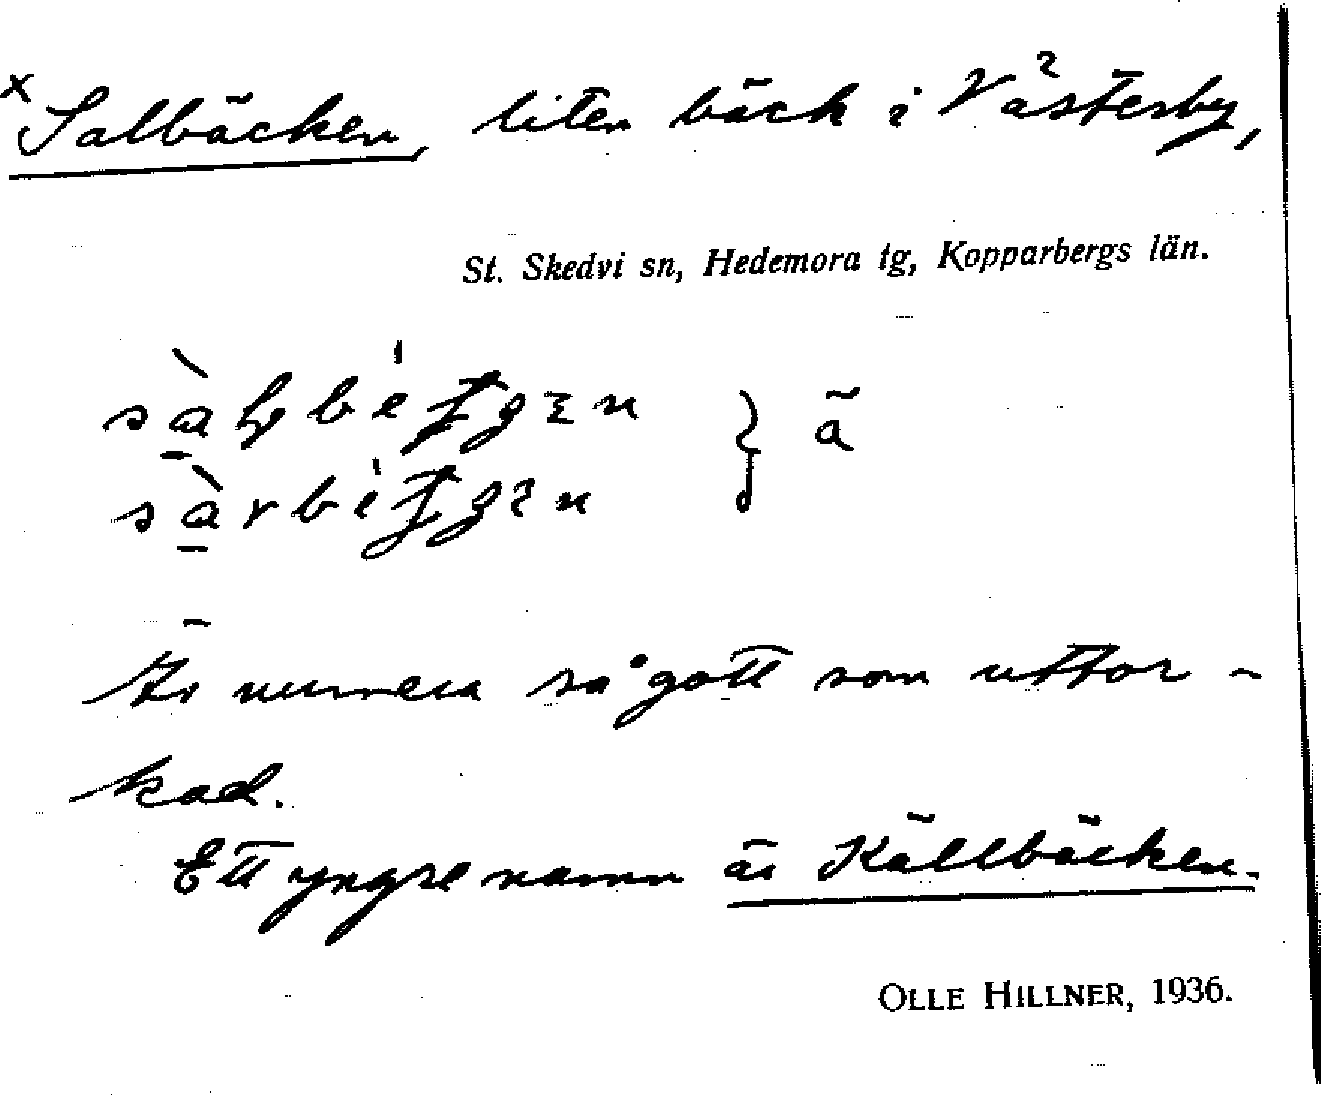 x Salbäcken, liten bäck i Västerby,
St. Skedvi sn, Hedemora tg, Kopparbergs län.
ā
Är numera så gott som uttor-
kad.
Ett yngre namn är Källbäcken.
OLLE HILLNER, 1936.